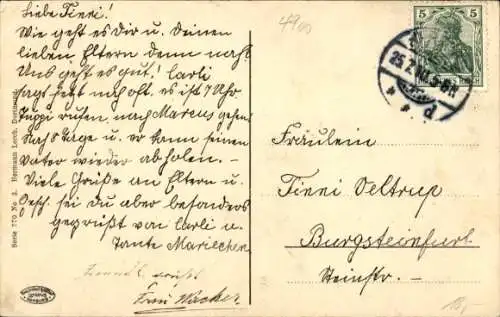 Liebe Finni!
Wie geht es dir u. deinen
lieben Eltern denn noch?
Uns geht es gut! Carli
sagt jetzt noch oft. es ist 7 Uhr
rufen, nach Marcus gehen
Noch 8 Tage u. er kann seinen
Vater wieder abholen. -
Viele Grüße an Eltern u.
Gesch. sei du aber besonders
gegrüßt von Carli u.
Tante Mariechen.
Frau Wacker
Serie 770 No 3. Hermann Lorch, Dortmund
4900
5 5
25.2.
* * d
Fräulein
Finni Oeltrup
Burgsteinfurt
Steinstr.